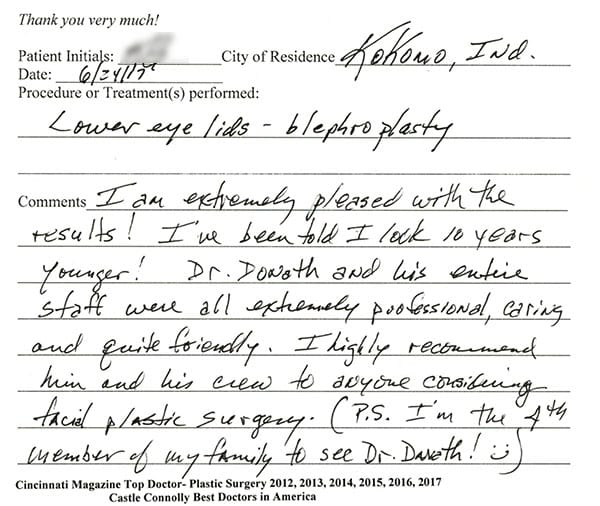 Thank you very much!
Patient Initials: City of Residence Kokomo, Ind.
Date: 6/24/17
Procedure or Treatment(s) performed:
Lower eye lids - blephroplasty
Comments I am extremely pleased with the
results! I've been told I look 10 years
younger! Dr. Donath and his entire
staff were all extremely professional, caring
and quite friendly. I highly recommend
him and his crew to anyone considering
facial plastic surgery. (P.S. I'm the 4th
member of my family to see Dr. Donath! :-)
Cincinnati Magazine Top Doctor- Plastic Surgery 2012, 2013, 2014, 2015, 2016, 2017
Castle Connolly Best Doctors in America